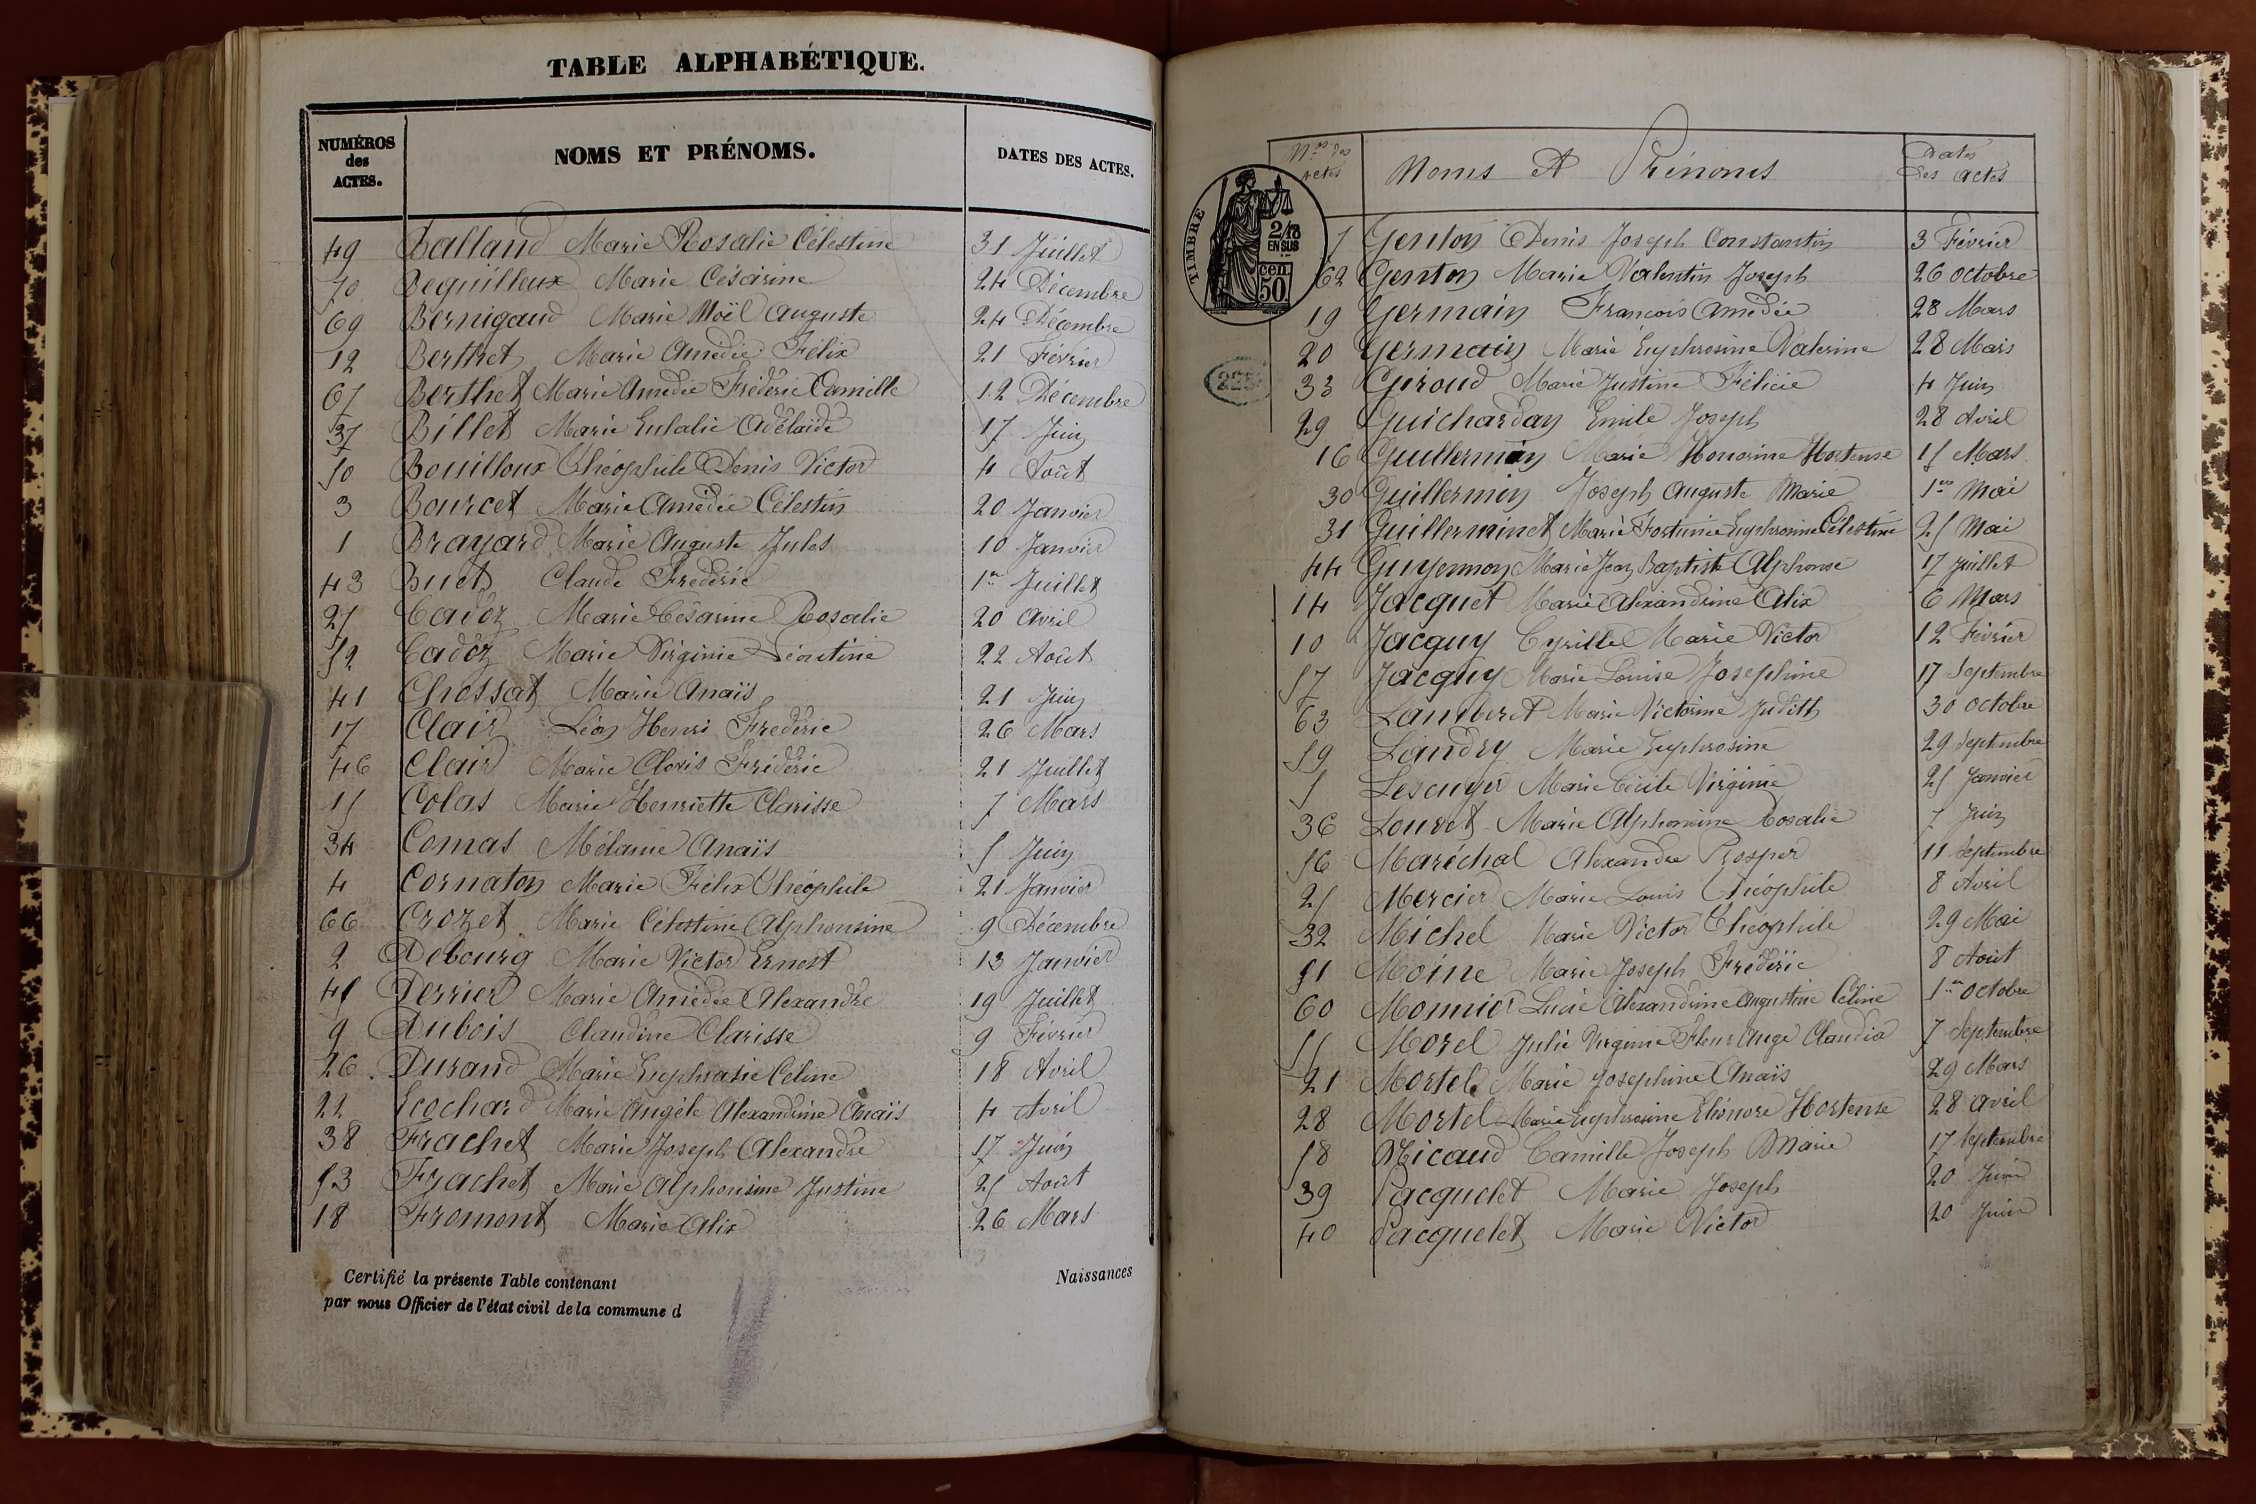 TABLE ALPHABÉTIQUE.
NUMÉROS des ACTES. NOMS ET PRÉNOMS. DATES DES ACTES.
49 Balland Marie Rosalie Célestine 31 Juillet
70 Bequilleux Marie Césarine 24 Décembre
69 Bernigaud Marie Noël Auguste 24 Décembre
12 Berthet Marie Amédée Félix 21 Février
67 Berthet Marie Amédée Fréderic Camille 12 Décembre
37 Billet Marie Eulalie Adélaïde 17 Juin
50 Bouilloux Théophile Denis Victor 4 Août
3 Bourcet Marie Amédée Célestin 20 Janvier
1 Brayard Marie Auguste Jules 10 Janvier
43 Buet Claude Fréderic 1er Juillet
27 Cadoz Marie Césarine Rosalie 20 Avril
52 Cadoz Marie Virginie Léontine 22 Août
41 Chossat Marie Anaïs 21 Juin
17 Clair Léon Henri Fréderic 26 Mars
46 Clair Marie Clovis Fréderic 21 Juillet
15 Colas Marie Henriette Clarisse 7 Mars
34 Comas Mélanie Anaïs 5 Juin
4 Cornaton Marie Félix Théophile 21 Janvier
66 Crozet Marie Célestine Alphonsine 9 Décembre
2 Debourg Marie Victor Ernest 13 Janvier
45 Derrier Marie Amédée Alexandre 19 Juillet
9 Dubois Claudine Clarisse 9 Février
26 Durand Marie Euphrasie Céline 18 Avril
22 Ecochard Marie Angèle Alexandrine Anaïs 4 Avril
38 Frachet Marie Joseph Alexandre 17 Juin
53 Frachet Marie Alphonsine Justine 25 Août
18 Fromont Marie Alix 26 Mars
Certifié la présente Table contenant Naissances
par nous Officier de l'état civil de la commune d
Nos des Actes Noms et Prénoms Dates des actes
TIMBRE
2/10 EN SUS
cen 50.
225
7 Genton Denis Joseph Constantin 3 Février
62 Genton Marie Valentin Joseph 26 octobre
19 Germain François Amédée 28 Mars
20 Germain Marie Euphrosine Valerine 28 Mars
33 Giroud Marie Justine Félicie 4 Juin
29 Guichardan Emile Joseph 28 Avril
16 Guillermin Marie Honorine Hortense 15 Mars
30 Guillermin Joseph Auguste Marie 1er Mai
31 Guillerminet Marie Fortunée Euphrosine Célestine 25 Mai
44 Guyennon Marie Jean Baptiste Alphonse 17 Juillet
14 Jacquet Marie Alexandrine Alix 6 Mars
10 Jacquy Cyrille Marie Victor 12 Février
57 Jacquy Marie Louise Josephine 17 Septembre
63 Lambert Marie Victorine Judith 30 octobre
59 Landry Marie Euphrosine 29 Septembre
5 Lescuyer Marie Cécile Virginie 25 Janvier
36 Louvet Marie Alphonsine Rosalie 7 Juin
56 Maréchal Alexandre Prosper 11 Septembre
25 Mercier Marie Louis Théophile 8 Avril
32 Michel Marie Victor Théophile 29 Mai
51 Moine Marie Joseph Fréderic 8 Août
60 Monnier Lucie Alexandrine Augustine Céline 1er octobre
55 Morel Julie Virginie Fleur Ange Claudia 7 Septembre
21 Mortel Marie Josephine Anaïs 29 Mars
28 Mortel Marie Euphrosine Eléonore Hortense 28 avril
58 Nicaud Camille Joseph Marie 17 Septembre
39 Pacquelet Marie Joseph 20 Juin
40 Pacquelet Marie Victor 20 Juin